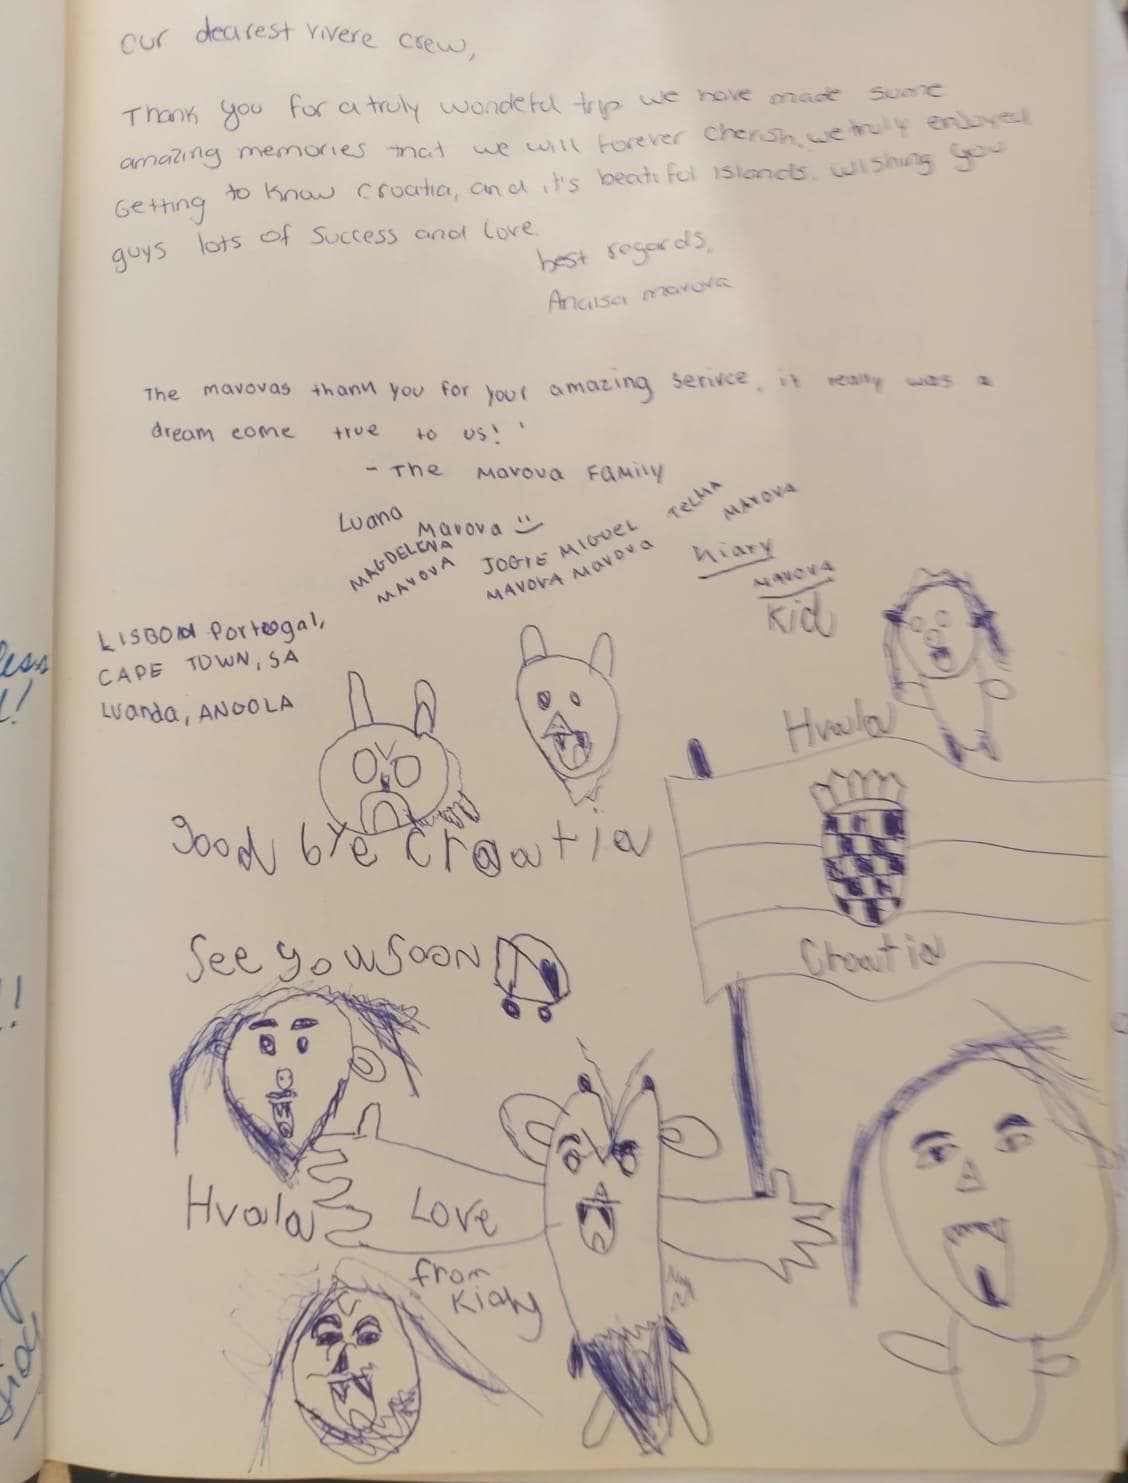 Our dearest vivere crew,
Thank you for a truly wondeful trip we have made some
amazing memories that we will forever cherish, we truly enjoyed
Getting to know Croatia, and it's beatiful islands. wishing you
guys lots of success and love.
best regards,
Analsa mavova
The mavovas thank you for your amazing serivce, it really was a
dream come true to us!
- The Mavova Family
Luana Mavova
MAGDELENA
MAVOVA
MIGUEL
MAVOVA MAVOVA
TELMA
MAVOVA
kiary
MAVOVA
Kid
LISBON Portoogal,
CAPE TOWN, SA
Luanda, ANGOLA
Hvala
good bye Croatia
Croatia
See you soon
Hvala
Love
from
Kiary